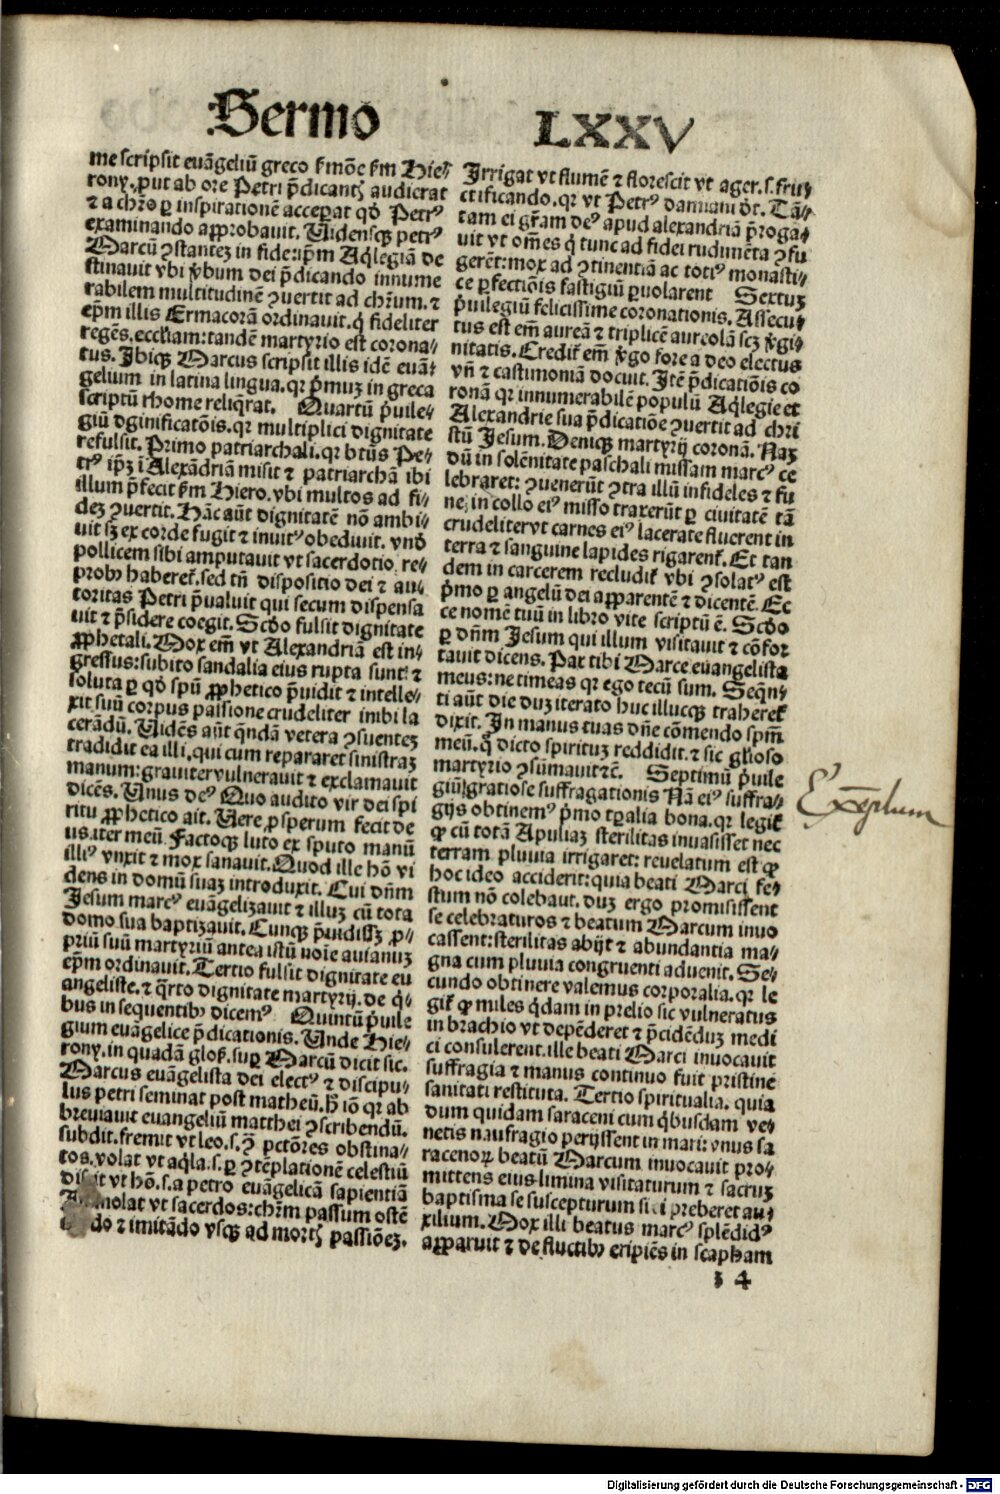 Sermo LXXV
me scripsit euãgeliũ greco s̃mõe s̃m Hie-
rony. ꝓut ab ore Petri p̃dicantꝭ audierat
⁊ a chr̃o ꝑ inspirationẽ acceꝑat qđ Petrꝰ
examinando aꝓprobauit. Uidensqꝫ petrꝰ
Marcũ ꝯstantez in fide: ip̃m Aq̃legiã de
stinauit vbi v̾bum dei p̃dicando innume
rabilem multitudinẽ ꝯuertit ad chr̃um. ⁊
ep̃m illis Ermacorã ordinauit. q̇ fideliter
regẽs. eccl̃iam: tandẽ martyrio est corona-
tus. Ibiqꝫ Marcus scripsit illis idẽ euã-
gelium in latina lingua. qꝛ p̃muz in greca
scriptũ rhome reliq̃rat. Quartũ p̃uile-
giũ dginificatõis. qꝛ multiplici dignitate
refulsit. Primo patriarchali. qꝛ btũs Pe-
trꝰ ip̃ꝫ ĩ Alexãdriã misit ⁊ patriarchã ibi
illum p̃fecit s̃m Hiero. vbi multos ad fi-
dez ꝯuertit. Hãc aũt dignitatẽ nõ ambi-
uit sꝫ ex corde fugit ⁊ inuitꝰ obediuit. vnđ
pollicem sibi amputauit vt sacerdotio re-
probꝰ haberet̃. sed tñ dispositio dei ⁊ au-
toritas Petri p̃ualuit qui secum dispensa
uit ⁊ p̃sidere coegit. Scđo fulsit dignitate
ꝓphetali. Mox em̃ vt Alexandriã est in-
gressus: subito sandalia eius rupta sunt ⁊
soluta ꝑ qđ spũ ꝓphetico p̃uidit ⁊ intelle-
xit suũ corpus passione crudeliter inibi la
cerãdũ. Uidẽs aũt q̃ndã vetera ꝯsuentez
tradidit ea illi. qui cum repararet sinistraz
manum: grauiter vulnerauit ⁊ exclamauit
dicẽs. Unus deꝰ Quo audito vir dei spi
ritu ꝓphetico ait. Uere ꝓsperum fecit de
us iter meũ. Factoqꝫ luto ex sputo manũ
illiꝰ vnxit ⁊ mox sanauit. Quod ille hõ vi
dens in domũ suaz introduxit. Cui dñm
Jesum marcꝰ euãgelizauit ⁊ illuz cũ tota
domo sua baptizauit. Cunqꝫ p̃uidissꝫ ꝓ-
priũ suũ martyriũ antea istũ noĩe auianuz
ep̃m ordinauit. Tertio fulsit dignitate eu
angeliste. ⁊ q̃rto dignitate martyrij. de q̇-
bus in sequentibꝰ dicemꝰ Quintũ p̃uile
gium euãgelice p̃dicationis. Unde Hie-
rony. in quadã glos̃. suꝑ Marcũ dicit sic.
Marcus euãgelista dei electꝰ ⁊ discipu-
lus petri seminat post matheũ. h̃ iõ qꝛ ab
breuiauit euangeliũ matthei ꝯscribendũ.
subdit. fremit vt leo. s. ꝯ̃ pctõres obstina-
tos. volat vt aq̃la. s. ꝑ ꝯtẽplationẽ celestiũ
vt hõ. s. a petro euãgelicã sapientiã
vt sacerdos: chr̃m passum ostẽ
do ⁊ imitãdo vsqꝫ ad mortꝭ passiõez.
Irrigat vt flumẽ ⁊ florescit vt ager. s. fru-
ctificando. qꝛ vt Petrꝰ damiani đt. Tã-
tam ei gr̃am deꝰ apud alexandriã p̃roga-
uit vt om̃es q̇ tunc ad fidei rudumẽta ꝯfu
gerẽt: mox ad ꝯtinentiã ac totiꝰ monasti-
ce ꝑfectiõis fastigiũ ꝑuolarent Sextuz
p̃uilegiũ felicissime coronationis. Assecu-
tus est em̃ aureã ⁊ triplicẽ aureolã scꝫ v̾gi-
nitatis. Credit̃ em̃ v̾go fore a deo electus
vñ ⁊ castimoniã docuit. Itẽ p̃dicatiõis co
ronã qꝛ innumerabilẽ populũ Aq̃legie et
Alexandrie sua p̃dicatiõe ꝯuertit ad chri
stũ Jesum. Deniqꝫ martyrij coronã. Naꝫ
dũ in solẽnitate paschali missam marcꝰ ce
lebraret: ꝯuenerũt ꝯtra illũ infideles ⁊ fu
ne: in collo eiꝰ misso traxerũt ꝑ ciuitatẽ tã
crudeliter vt carnes eiꝰ lacerate fluerent in
terra ⁊ sanguine lapides rigarent̃. Et tan
dem in carcerem recludit̃ vbi ꝯsolatꝰ est
p̃mo ꝑ angelũ dei aꝓparentẽ ⁊ dicentẽ. Ec
ce nomẽ tuũ in libro vite scriptũ ẽ. Scđo
ꝑ dñm Jesum qui illum visitauit ⁊ cõfor
tauit dicens. Pax tibi Marce euangelista
meus: ne timeas qꝛ ego tecũ sum. Seq̃n-
ti aũt die duz iterato huc illucqꝫ traheret̃
dixit. In manus tuas dñe cõmendo spm̃
meũ. q̃ dicto spirituz reddidit. ⁊ sic gl̃ioso
martyrio ꝯsũmauit ⁊c̃. Septimũ p̃uile
giũ gratiose suffragationis Nã eiꝰ suffra-
gijs obtinemꝰ p̃mo tꝑalia bona. qꝛ legit̃
ꝙ cũ totã Apuliaz sterilitas inuasisset nec
terram pluuia irrigaret: reuelatum est ꝙ
hoc ideo acciderit: quia beati Marci fe-
stum nõ colebaut. duz ergo promisissent
se celebraturos ⁊ beatum Marcum inuo
cassent: sterilitas abijt ⁊ abundantia ma-
gna cum pluuia congruenti aduenit. Se-
cundo obtinere valemus corporalia. qꝛ le
git̃ ꝙ miles q̇dam in prelio sic vulneratus
in brachio vt depẽderet ⁊ p̃cidẽduz medi
ci consulerent. ille beati Marci inuocauit
suffragia ⁊ manus continuo fuit pristine
sanitati restituta. Tertio spiritualia. quia
dum quidam saraceni cum q̇busdam ve-
netis naufragio perijssent in mari: vnus sa
racenoꝝ beatũ Marcum inuocauit pro-
mittens eius limina visitaturum ⁊ sacruz
baptisma se suscepturum si ei preberet au-
xilium. Mox illi beatus marcꝰ splẽdidꝰ
aꝓparuit ⁊ de fluctibꝰ eripiẽs in scapham
Exemplum
3 4
Digitalisierung gefördert durch die Deutsche Forschungsgemeinschaft - DFG